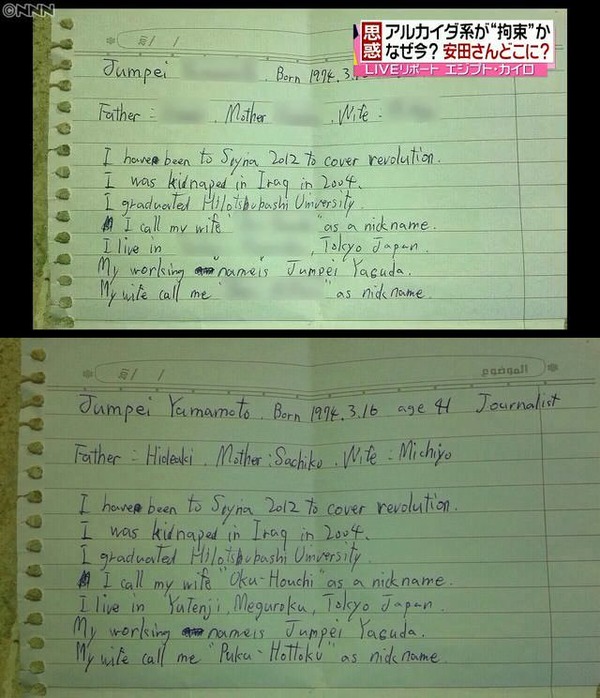 ©NNN
思惑
アルカイダ系が“拘束”か
なぜ今? 安田さんどこに?
LIVEリポート エジプト・カイロ
Jumpei . Born 1974.3.16
Father = . Mother . Wife =
I have been to Syria 2012 to cover revolution.
I was kidnaped in Iraq in 2004.
I graduated Hitotsubashi University
I call my wife " " as a nickname.
I live in , Tokyo Japan.
My working name is Jumpei Yasuda.
My wife call me " " as nickname.
الموضوع
Jumpei Yamamoto . Born 1974.3.16 age 41 Journalist
Father = Hideaki . Mother : Sachiko . Wife = Michiyo
I have been to Syria 2012 to cover revolution.
I was kidnaped in Iraq in 2004.
I graduated Hitotsubashi University.
I call my wife "Oku-Houchi" as a nickname.
I live in Yutenji, Meguroku, Tokyo Japan.
My working name is Jumpei Yasuda.
My wife call me "Puku-Hottoku" as nickname.